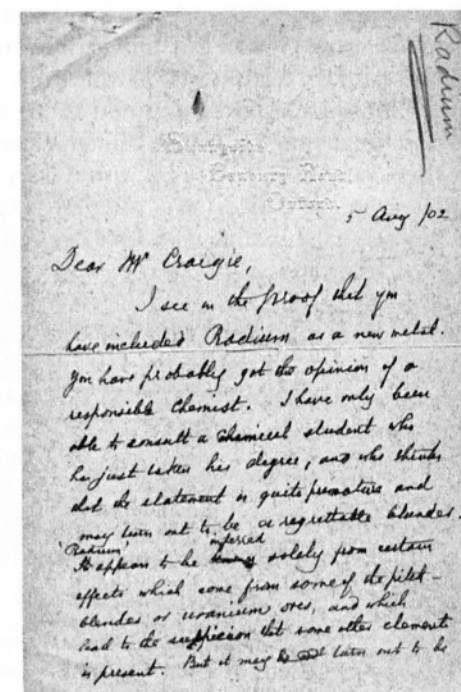 Radium
Banbury Road,
Oxford.
5 Aug /02
Dear Mr Craigie,
I see in the proof that you
have included Radium as a new metal.
You have probably got the opinion of a
responsible chemist. I have only been
able to consult a Chemical student who
has just taken his degree, and who thinks
that the statement is quite premature and
may turn out to be a regrettable blunder.
'Radium' inferred
It appears to be solely from certain
effects which come from some of the pitch-
blendes or uranium ores, and which
lead to the suspicion that some other element
is present. But it may turn out to be